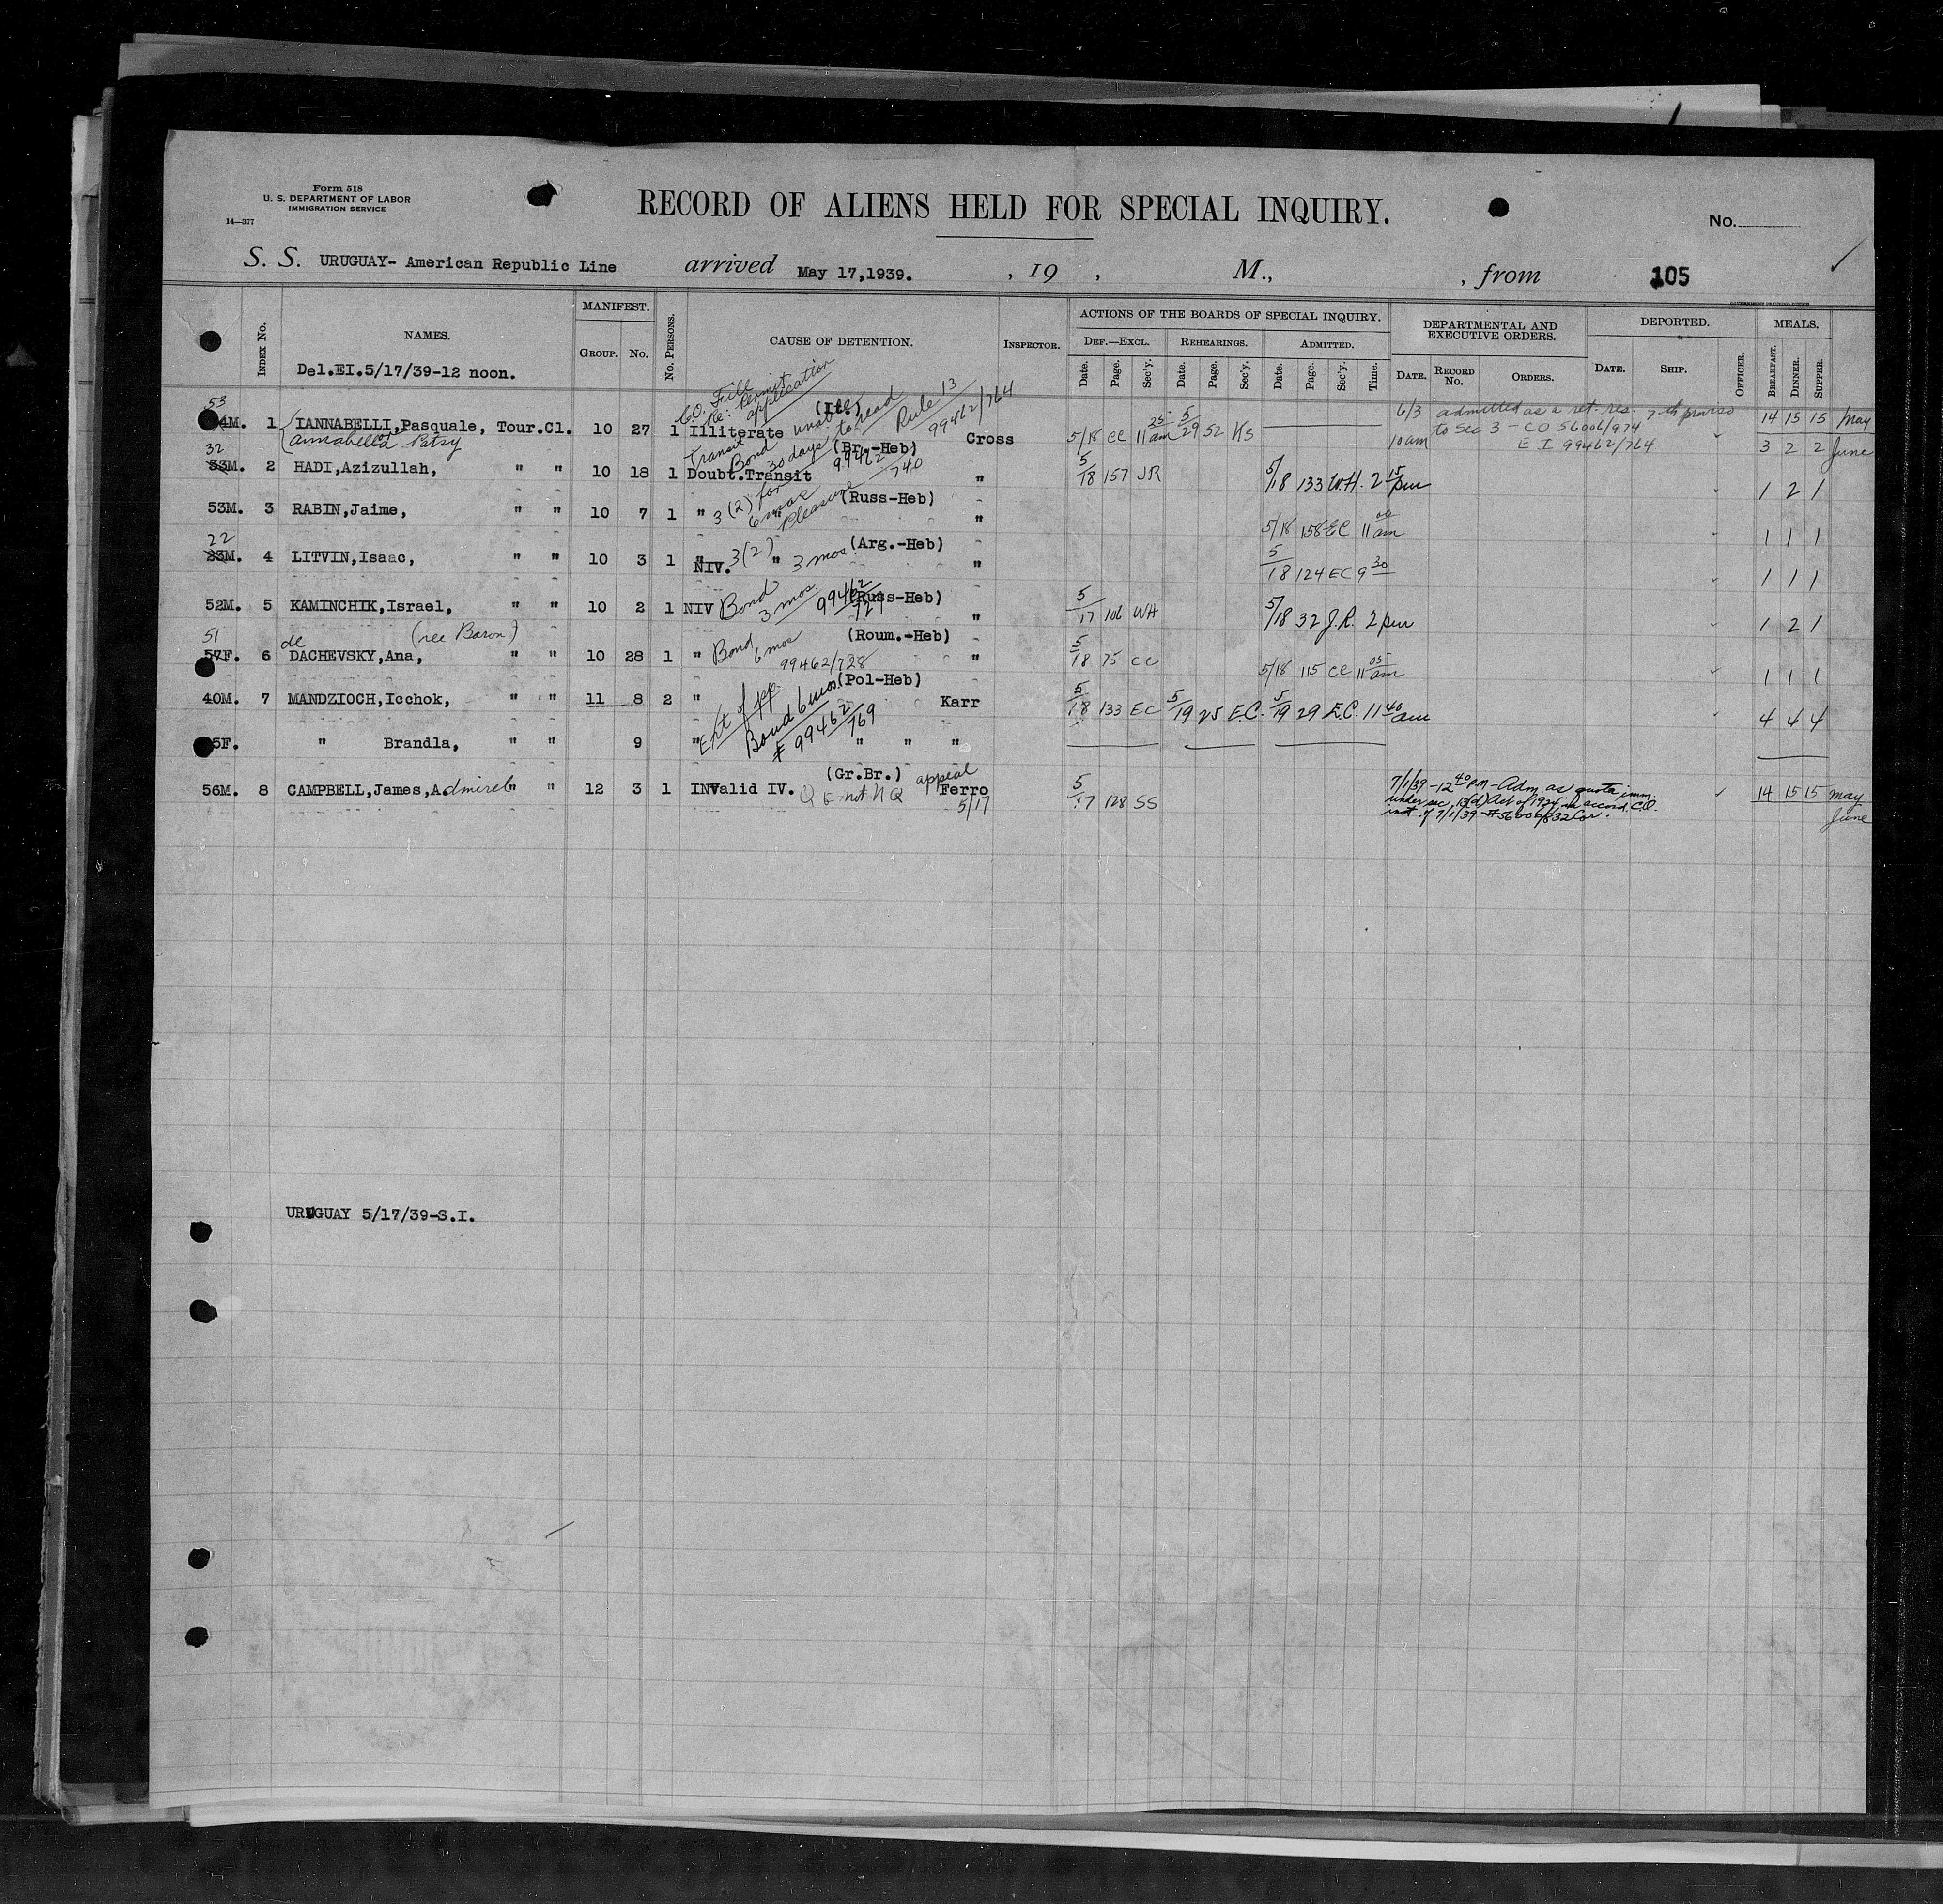 Form 518
U. S. DEPARTMENT OF LABOR
IMMIGRATION SERVICE
14—377
RECORD OF ALIENS HELD FOR SPECIAL INQUIRY.
No.
S. S. URUGUAY- American Republic Line arrived May 17,1939. , 19 , M., , from 105
INDEX No. NAMES. MANIFEST. No. PERSONS. CAUSE OF DETENTION. INSPECTOR. ACTIONS OF THE BOARDS OF SPECIAL INQUIRY. DEPARTMENTAL AND EXECUTIVE ORDERS. DEPORTED. MEALS.
GROUP. No. DEF.—EXCL. REHEARINGS. ADMITTED.
Date. Page. Sec'y. Date. Page. Sec'y. Date. Page. Sec'y. Time. DATE. RECORD No. ORDERS. DATE. SHIP. OFFICER. BREAKFAST. DINNER. SUPPER.
Del.EI.5/17/39-12 noon.
C.O. File
Re: Permit
application
53 (It.) unable to read Rule 13 99462/764
4M. 1 IANNABELLI,Pasquale, Tour.Cl. 10 27 1 Illiterate Cross 5/18 CC 11 25 am 5/29 52 KS 6/3 admitted as a ret. res. 7th proviso 14 15 15 May
Annabella Patsy to Sec 3 - CO 56006/974
10 am E I 99462/764 3 2 2 June
32 Transit Bond 30 days (Br.-Heb) 99462/740
33M. 2 HADI,Azizullah, " " 10 18 1 Doubt.Transit " 5/18 157 JR 5/18 133 W.H. 2 15 pm 1 2 1
(Russ-Heb)
53M. 3 RABIN,Jaime, " " 10 7 1 " 3(2) for 6 mos Pleasure " 5/18 158 EC 11 00 am 1 1 1
22 (Arg.-Heb)
23M. 4 LITVIN,Isaac, " " 10 3 1 " NIV. 3(2) " 3 mos " 5/18 124 EC 9 30 1 1 1
(Russ-Heb)
52M. 5 KAMINCHIK,Israel, " " 10 2 1 NIV Bond 3 mos 99462/727 " 5/17 106 WH 5/18 32 J.R. 2 pm 1 2 1
51 de (see Baron) (Roum.-Heb)
57F. 6 DACHEVSKY,Ana, " " 10 28 1 " Bond 6 mos 99462/728 " 5/18 75 CC 5/18 115 CC 11 05 am 1 1 1
(Pol-Heb)
40M. 7 MANDZIOCH,Icchok, " " 11 8 2 " Ext of pp. Bond 6 mos # 99462/769 Karr 5/18 133 EC 5/19 25 E.C. 5/19 29 E.C. 11 40 am 4 4 4
5F. " Brandla, " " 9 " " " "
(Gr.Br.) appeal
56M. 8 CAMPBELL,James,Admirel " " 12 3 1 INValid IV. Q E not N Q Ferro 5/17 5/17 128 SS 7/1/39-12 40 PM-Adm as quota imm. 14 15 15 May
under sec. 13(d) Act of 1924 in accord. C.O.
inst. of 7/1/39 - #56006/832 Cor. June
URUGUAY 5/17/39-S.I.